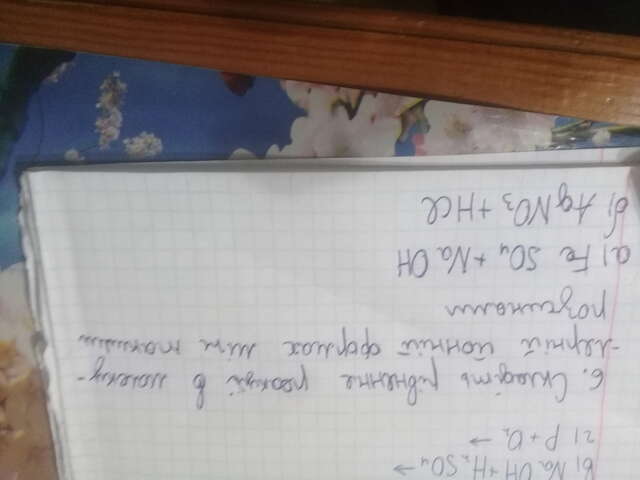 в) NaOH+H₂SO₄→
г) P+O₂→
6. Складіть рівняння реакції в молеку-
-лярній йонній формах між такими
розчинами
а) FeSO₄+NaOH
б) AgNO₃+HCl